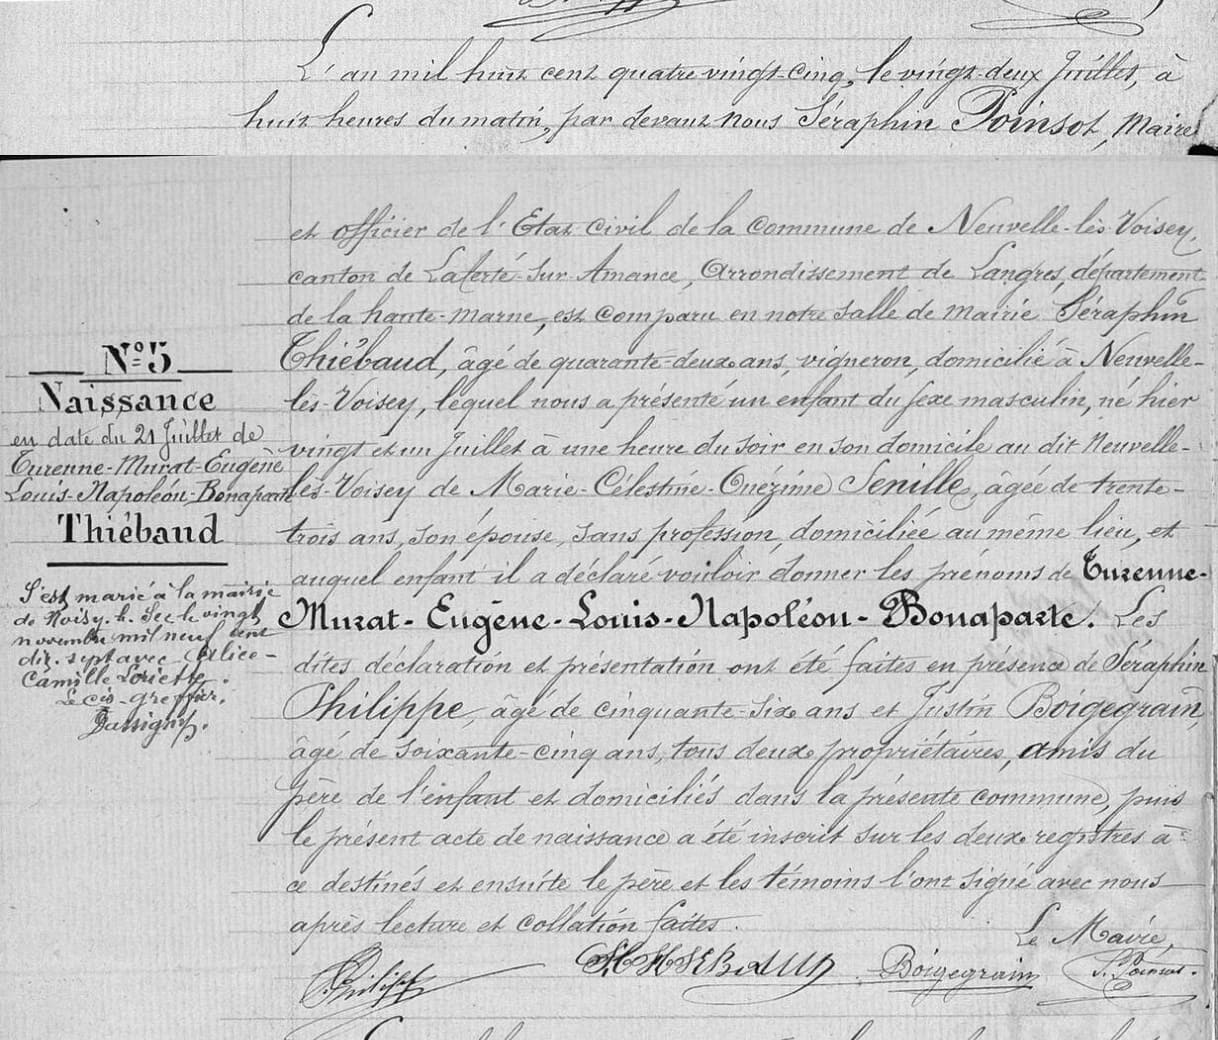 L'an mil huit cent quatre vingt-cinq, le vingt-deux Juillet, à
huit heures du matin, par devant nous Séraphin Poinsot, Maire
et officier de l'Etat civil de la commune de Neuvelle-lès-Voisey,
canton de Laferté-sur-Amance, Arrondissement de Langres, département
de la haute-marne, est comparu en notre salle de mairie Séraphin
Thiébaud, âgé de quarante-deux ans, vigneron, domicilié à Neuvelle-
lès-Voisey, lequel nous a présenté un enfant du sexe masculin, né hier
vingt et un Juillet à une heure du soir en son domicile au dit Neuvelle-
lès-Voisey de Marie-Célestine-Onézime Senille, âgée de trente-
trois ans, son épouse, sans profession, domiciliée au même lieu, et
auquel enfant il a déclaré vouloir donner les prénoms de Turenne-
Murat-Eugène-Louis-Napoléon-Bonaparte. Les
dites déclaration et présentation ont été faites en présence de Séraphin
Philippe, âgé de cinquante-six ans et Justin Boigegrain,
âgé de soixante-cinq ans, tous deux propriétaires, amis du
père de l'enfant et domiciliés dans la présente commune, puis
le présent acte de naissance a été inscrit sur les deux registres à
ce destinés et ensuite le père et les témoins l'ont signé avec nous
après lecture et collation faites.
Le Maire,
Philippe THIEBAUD Boigegrain S. Poinsot.
N° 5
Naissance
en date du 21 Juillet de
Turenne-Murat-Eugène
Louis-Napoléon-Bonaparte
Thiébaud
S'est marié à la mairie
de Noisy-le-Sec le vingt
novembre mil neuf cent
dix-sept avec Alice-
Camille Loriette.
Le cis-greffier,